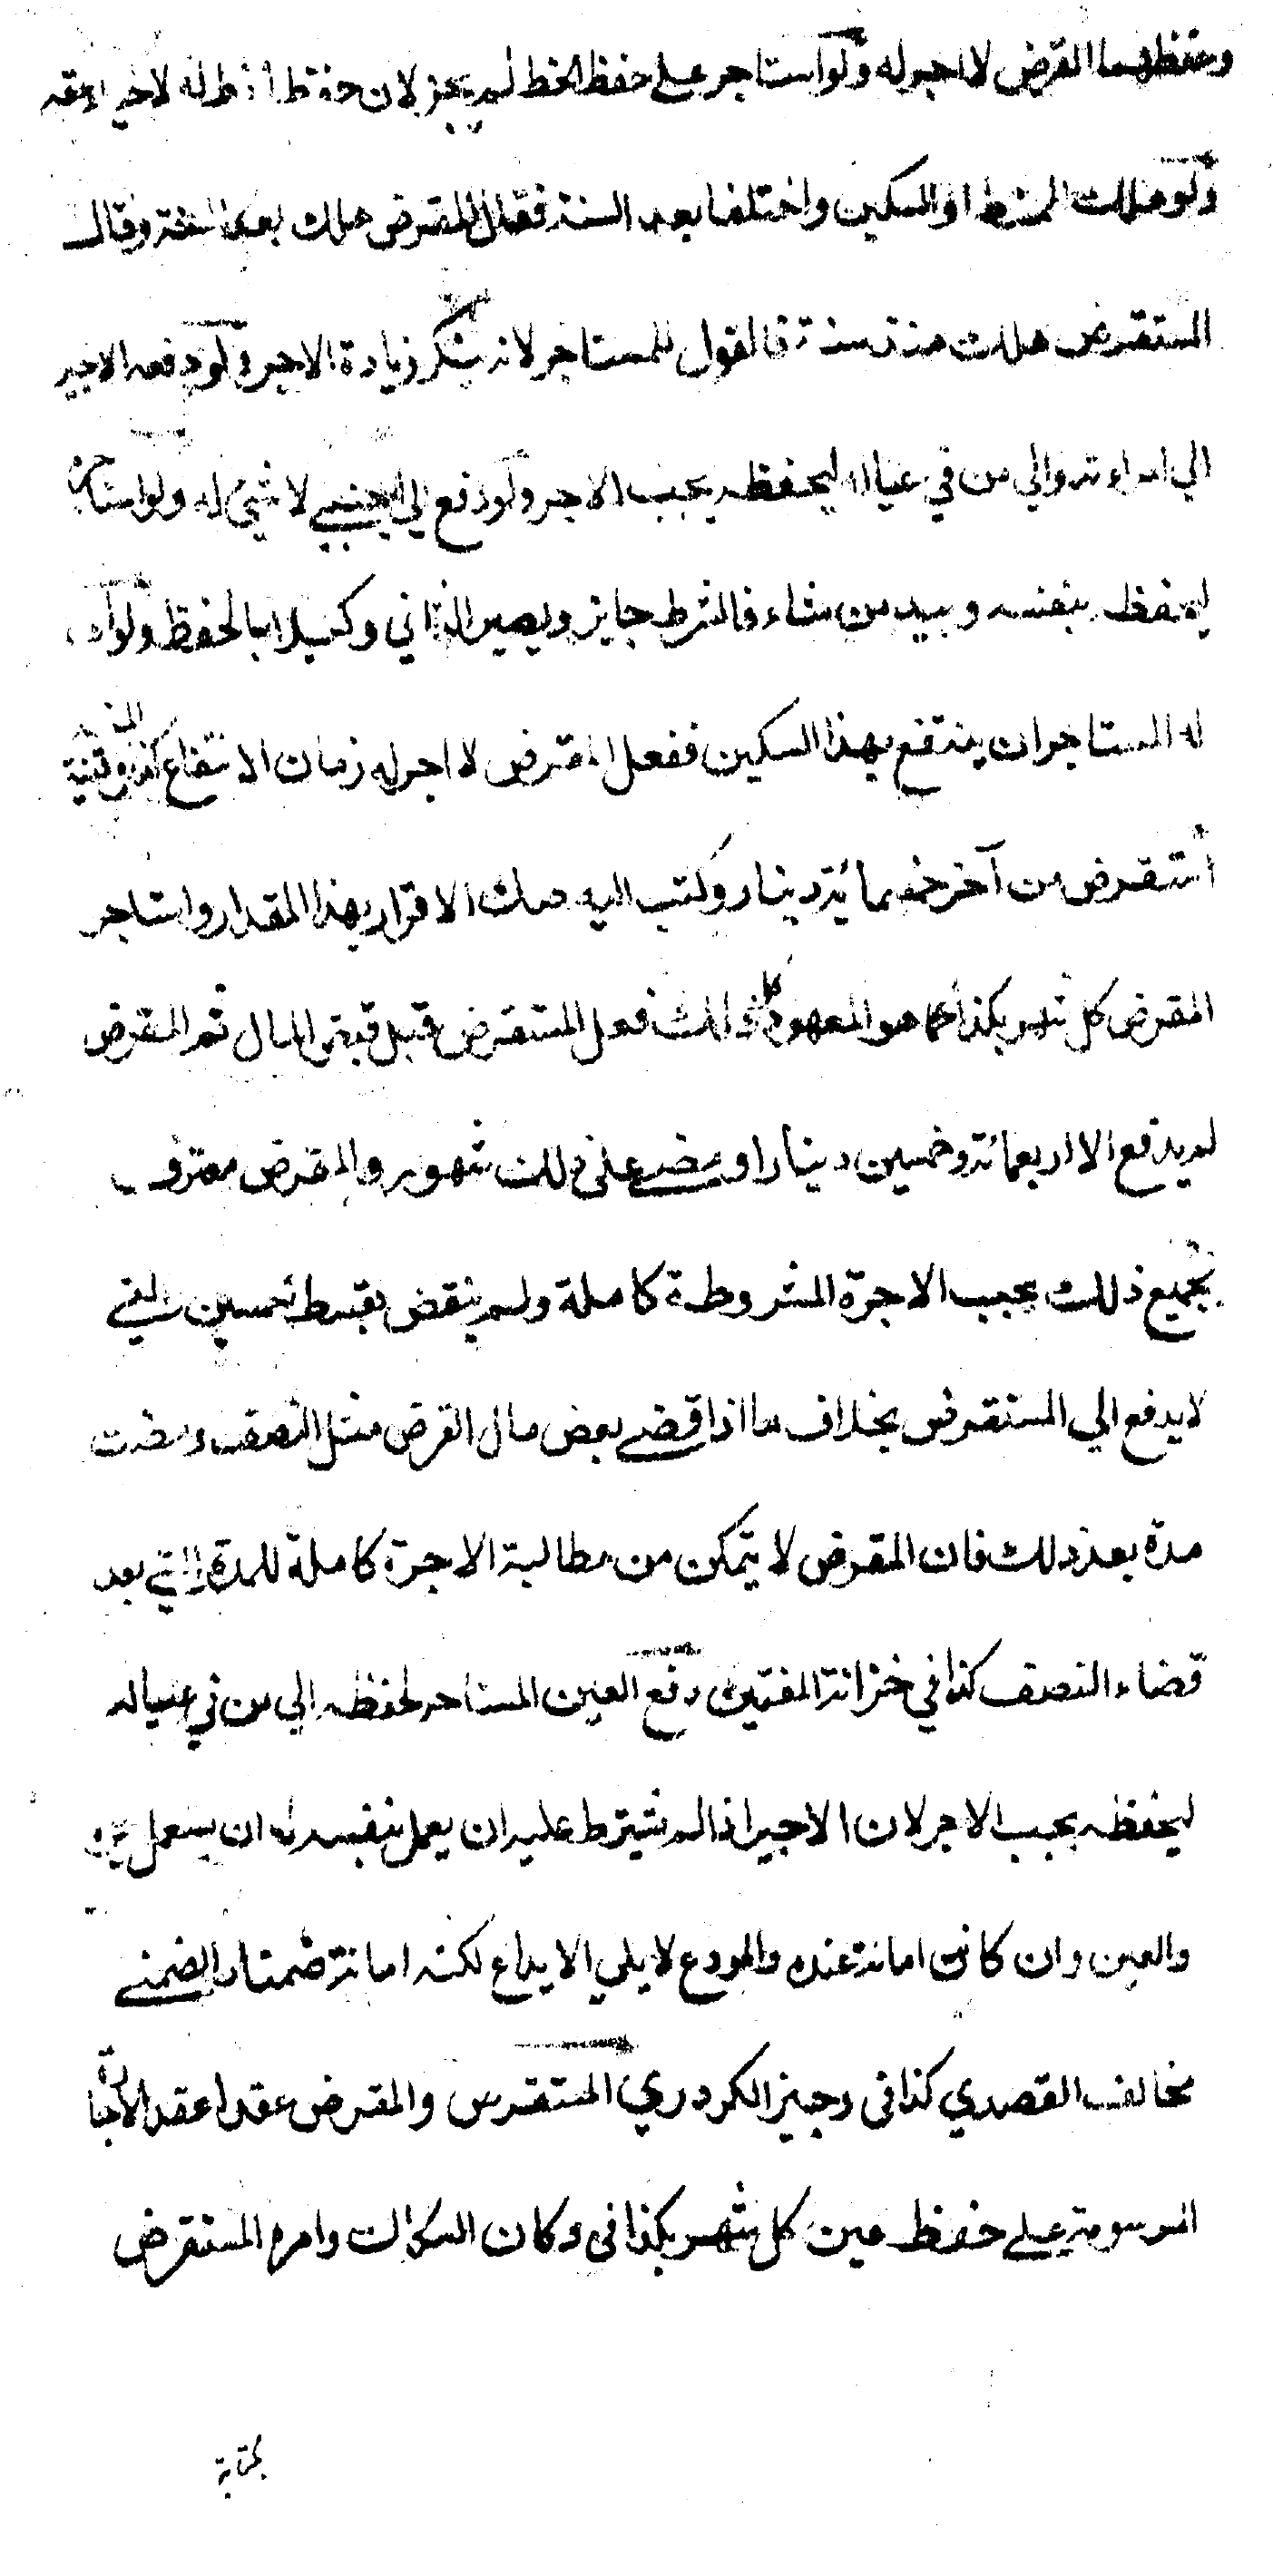 وحفظهما المقرض لا اجر له ولو استاجر على حفظ الخط لم يجز لان حفظ الخط له لا
ولو هلك المشط او السكين واختلفا بعد السنة فقال المقرض هلك بعد السنة وقال
المستقرض هلك منذ سنة فالقول للمستاجر لانه ينكر زيادة الاجر ولو دفعه الاجير
الي امراءته والي من في عياله ليحفظه يجب الاجر ولو دفع الي اجنبي لا شيئ له ولو استاجره
ليحفظ بنفسه وبيد من شاء فالشرط جايز ويصير الثاني وكيلا بالحفظ ولو اذن
له المستاجر ان ينتفع بهذا السكين ففعل المقرض لا اجر له زمان الانتفاع كذا في القنية
استقرض من آخر خمسمائة دينار وكتب اليه صك الاقرار بهذا المقدار واستاجر
المقرض كل شهر بكذا كما هو المعهود كل ذلك فعل المستقرض قبل قبض المال ثم المقرض
لم يدفع الا اربعمائة وخمسين دينارا ومضى على ذلك شهور والمقرض معترف
بجميع ذلك يجب الاجرة المشروطة كاملة ولم ينقض بقسط خمسين التي
لا يدفع الي المستقرض بخلاف ما اذا قضي بعض مال القرض مثل النصف ومضت
مدة بعد ذلك فان المقرض لا يتمكن من مطالبة الاجرة كاملة للمدة التي بعد
قضاء النصف كذا في خزانة المفتين دفع العين المستاجر لحفظه الي من في عياله
ليحفظه يجب الاجر لان الاجير اذا لم يشترط عليه ان يعمل بنفسه له ان يستعمل غيره
والعين وان كانت امانة عنده والمودع لا يلي الايداع لكنه امانة ضمنا والضمني
مخالف القصدي كذا في وجيز الكردري المستقرض والمقرض عقدا عقد الاجارة
المرسومة على حفظ عين كل شهر بكذا في دكان السكاك وامره المستقرض
بكتابة